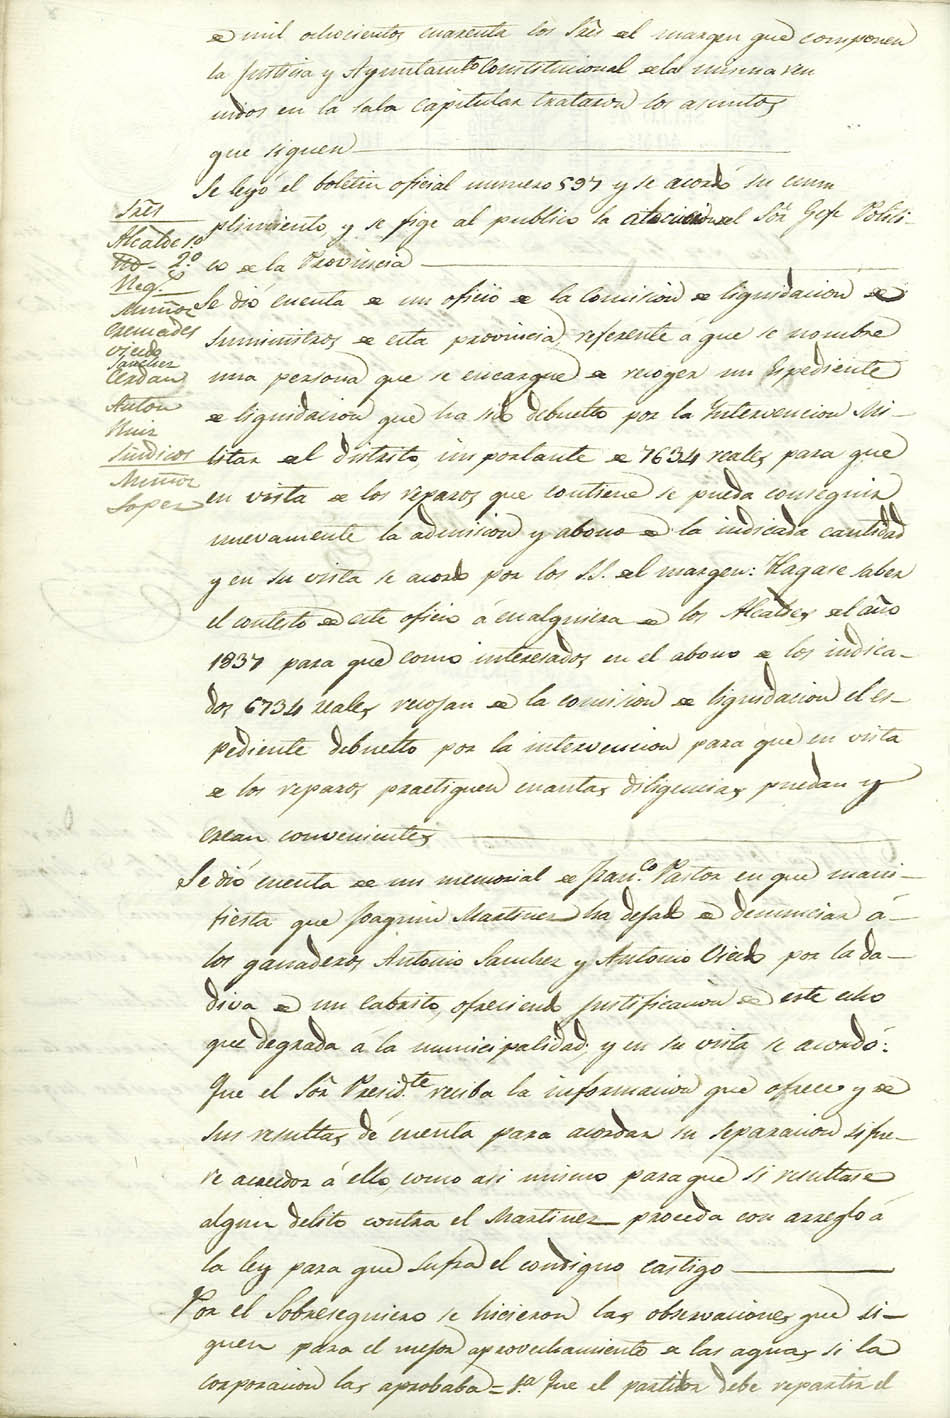 de mil ochocientos cuarenta los Sres. del margen que componen
la Justicia y Ayuntamto. Constitucional de la misma reu
nidos en la sala capitular trataron los asuntos
que siguen
Se leyó el boletin oficial numero 597 y se acordó su cum
plimiento, y se fige al publico la alocucion del Sôr Gefe Politi-
co de la Provincia
Sres
Alcalde 1.º
2.º
Reg.s
Muñoz
Cremades
Oviedo
Sanchez
Cerdan
Anton
Ruiz
Sindicos
Muñoz
Lopez
Se dió cuenta de un oficio de la Comision de liquidacion de
Suministros de esta provincia referente á que se nombre
una persona que se encargue de recoger un Espediente
de liquidacion que ha sido debuelto por la Intervencion Mi-
litar del distrito importante de 7634 reales para que
en vista de los reparos que contiene se pueda conseguir
nuevamente la admision y abono de la indicada cantidad
y en su vista se acordó por los S.S. del margen: Hagase saber
el contesto de este oficio á cualquiera de los Alcaldes del año
1837 para que como interesados en el abono de los indica-
dos 6734 reales recojan de la comision de liquidacion el es-
pediente debuelto por la intervencion para que en vista
de los reparos practiquen cuantas diligencias puedan y
crean convenientes
Se dió cuenta de un memorial de Fran.co Pastor en que mani-
fiesta que Joaquin Martinez ha dejado de denunciar á-
los ganaderos Antonio Sanchez y Antonio Oviedo por la da-
diva de un cabrito, ofreciendo justificacion de este echo
que degrada á la municipalidad y en su vista se acordó:
Que el Sôr Presid.te reciba la informacion que ofrece y de
sus resultas dé cuenta para acordar su separacion si fue-
re acreedor á ello, como asi mismo para que si resultase
algun delito contra el Martinez proceda con arreglo á
la ley para que sufra el condigno castigo
Por el Sobreseguiero se hicieron las observaciones que si-
guen para el mejor aprovechamiento de las aguas si la
corporacion las aprobaba = 1.a Que el partidor debe repartir el